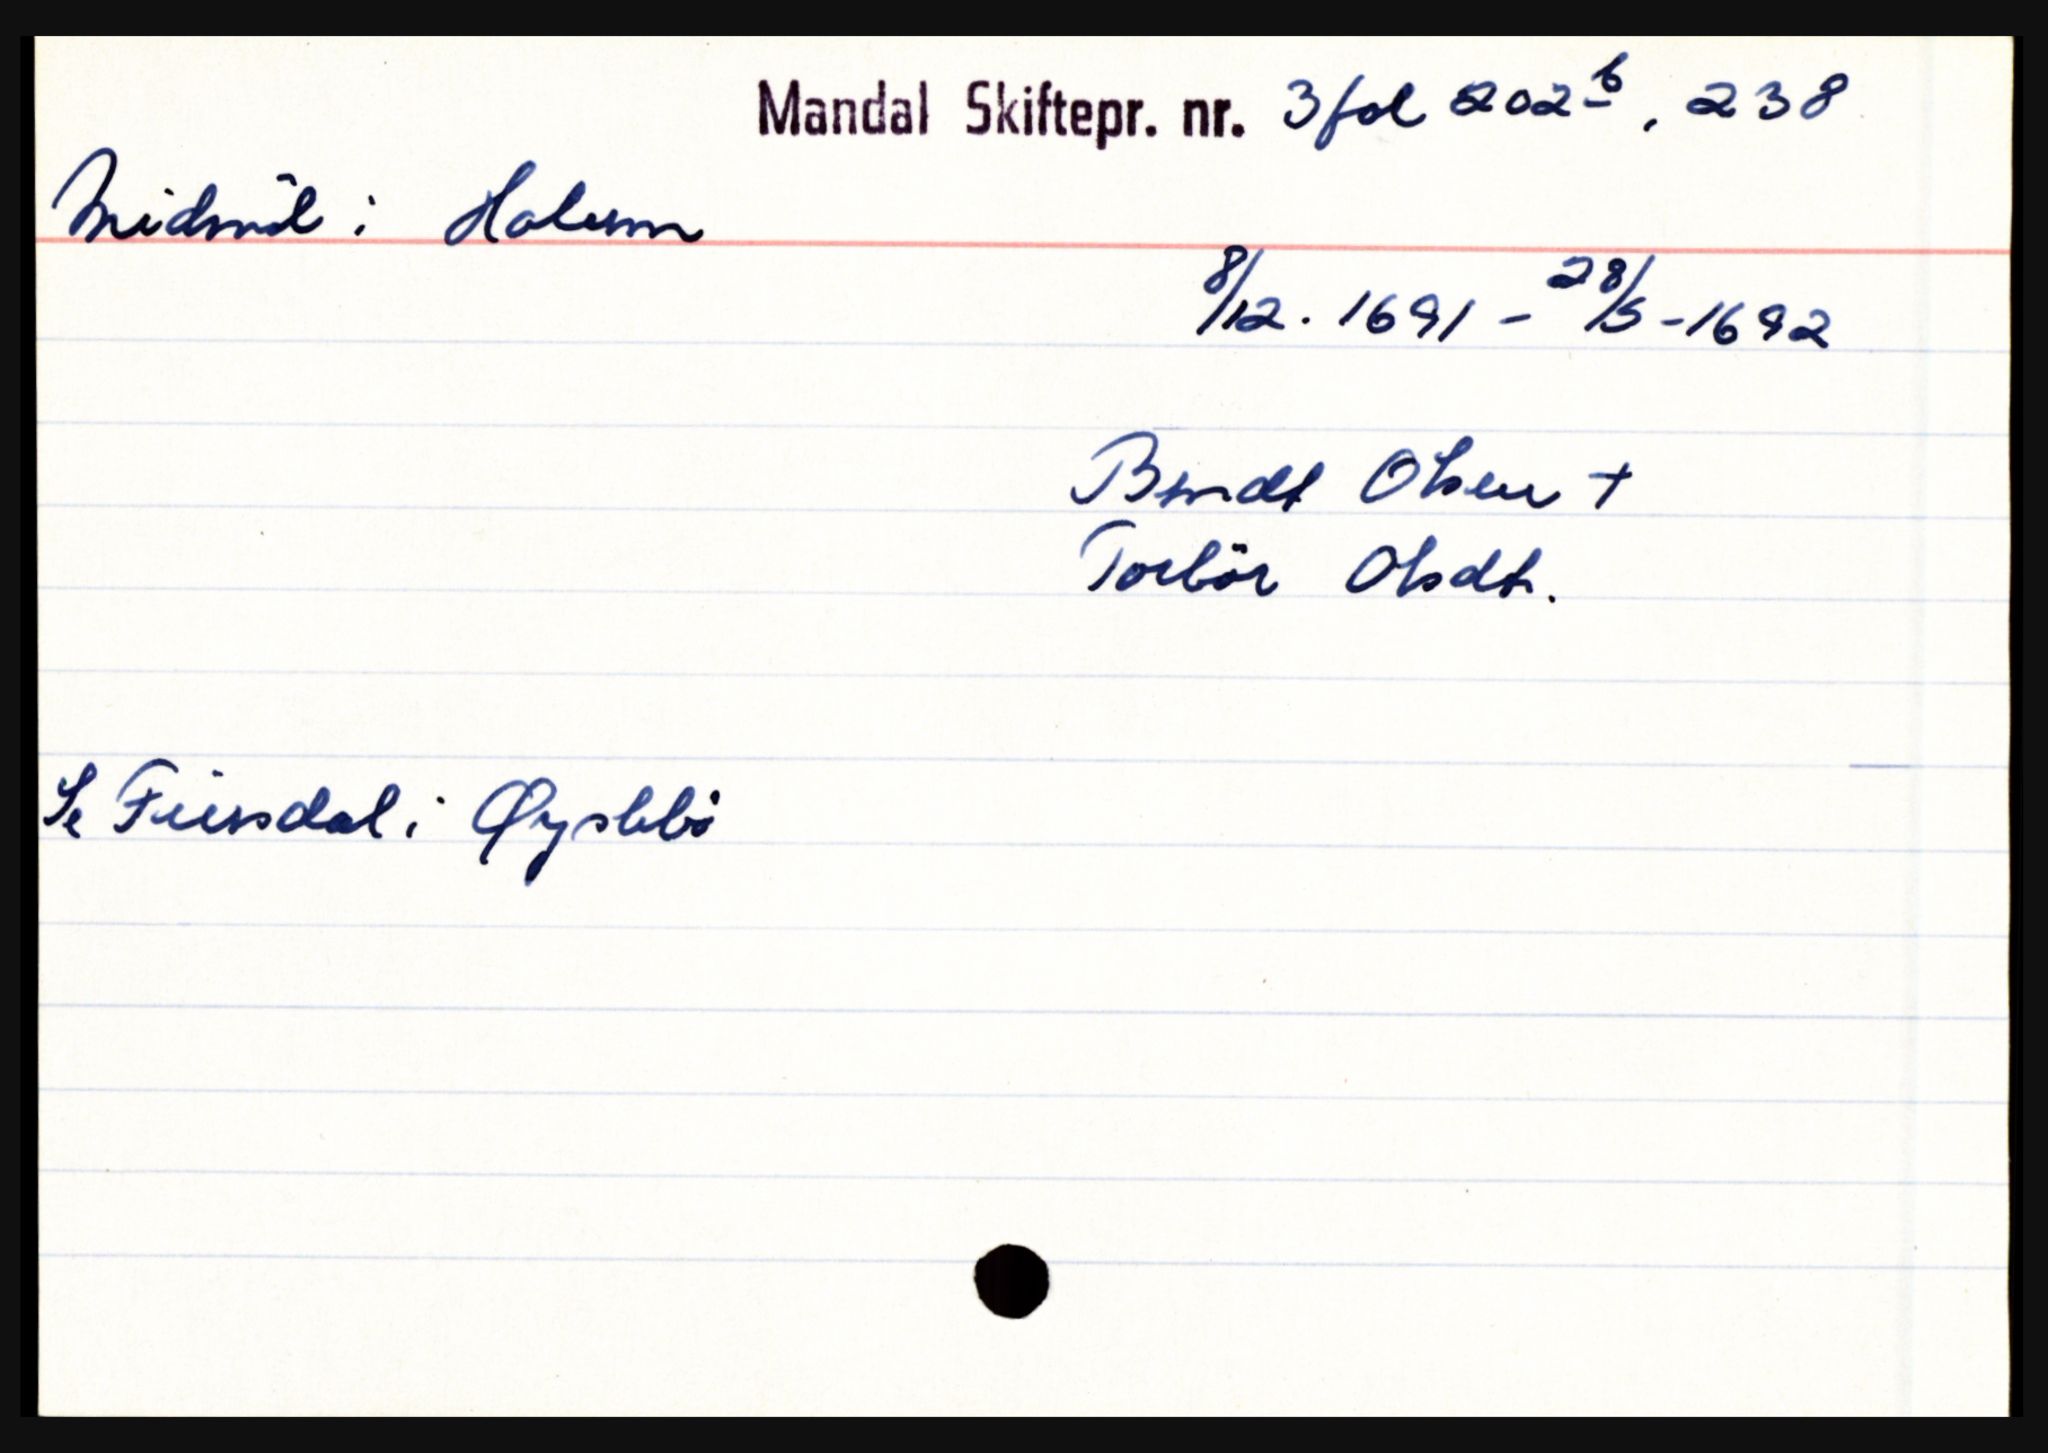 Mandal Skiftepr. nr. 3 fol 202b, 238
Midnöl i Halsem
8/12. 1691 - 28/5 - 1692
Berndt Olsen +
Torbör Olsdt.
Se Fuersdal i Øyslebö